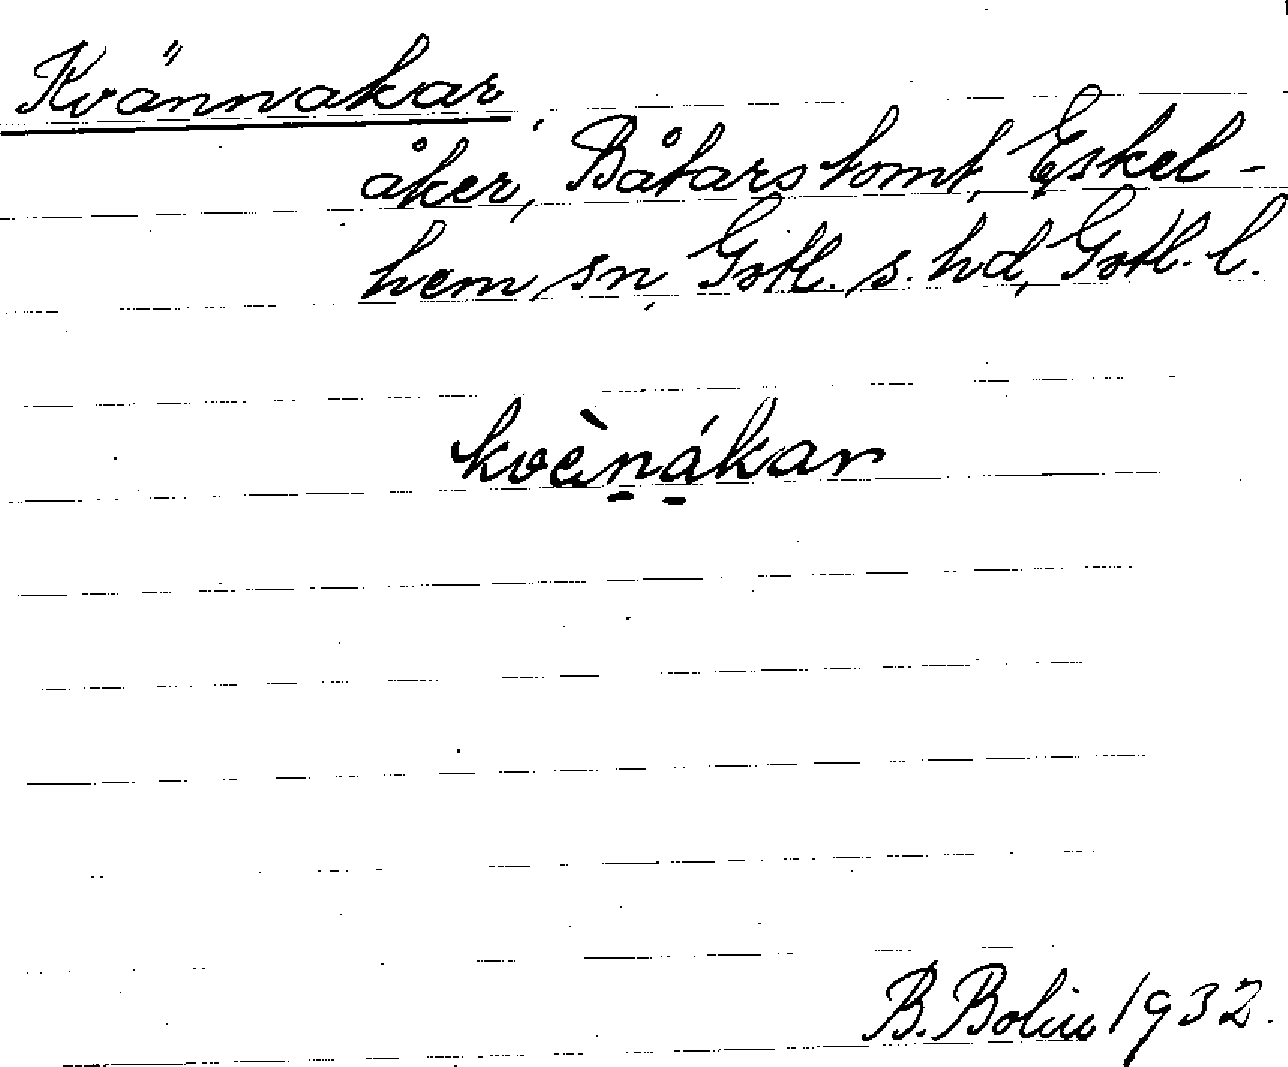 Kvännakar
åker, Båtarstomt, Eskel-
hem sn, Gotl. s. hd, Gotl. l.
kvèṉá̱kar
B. Bolin 1932.